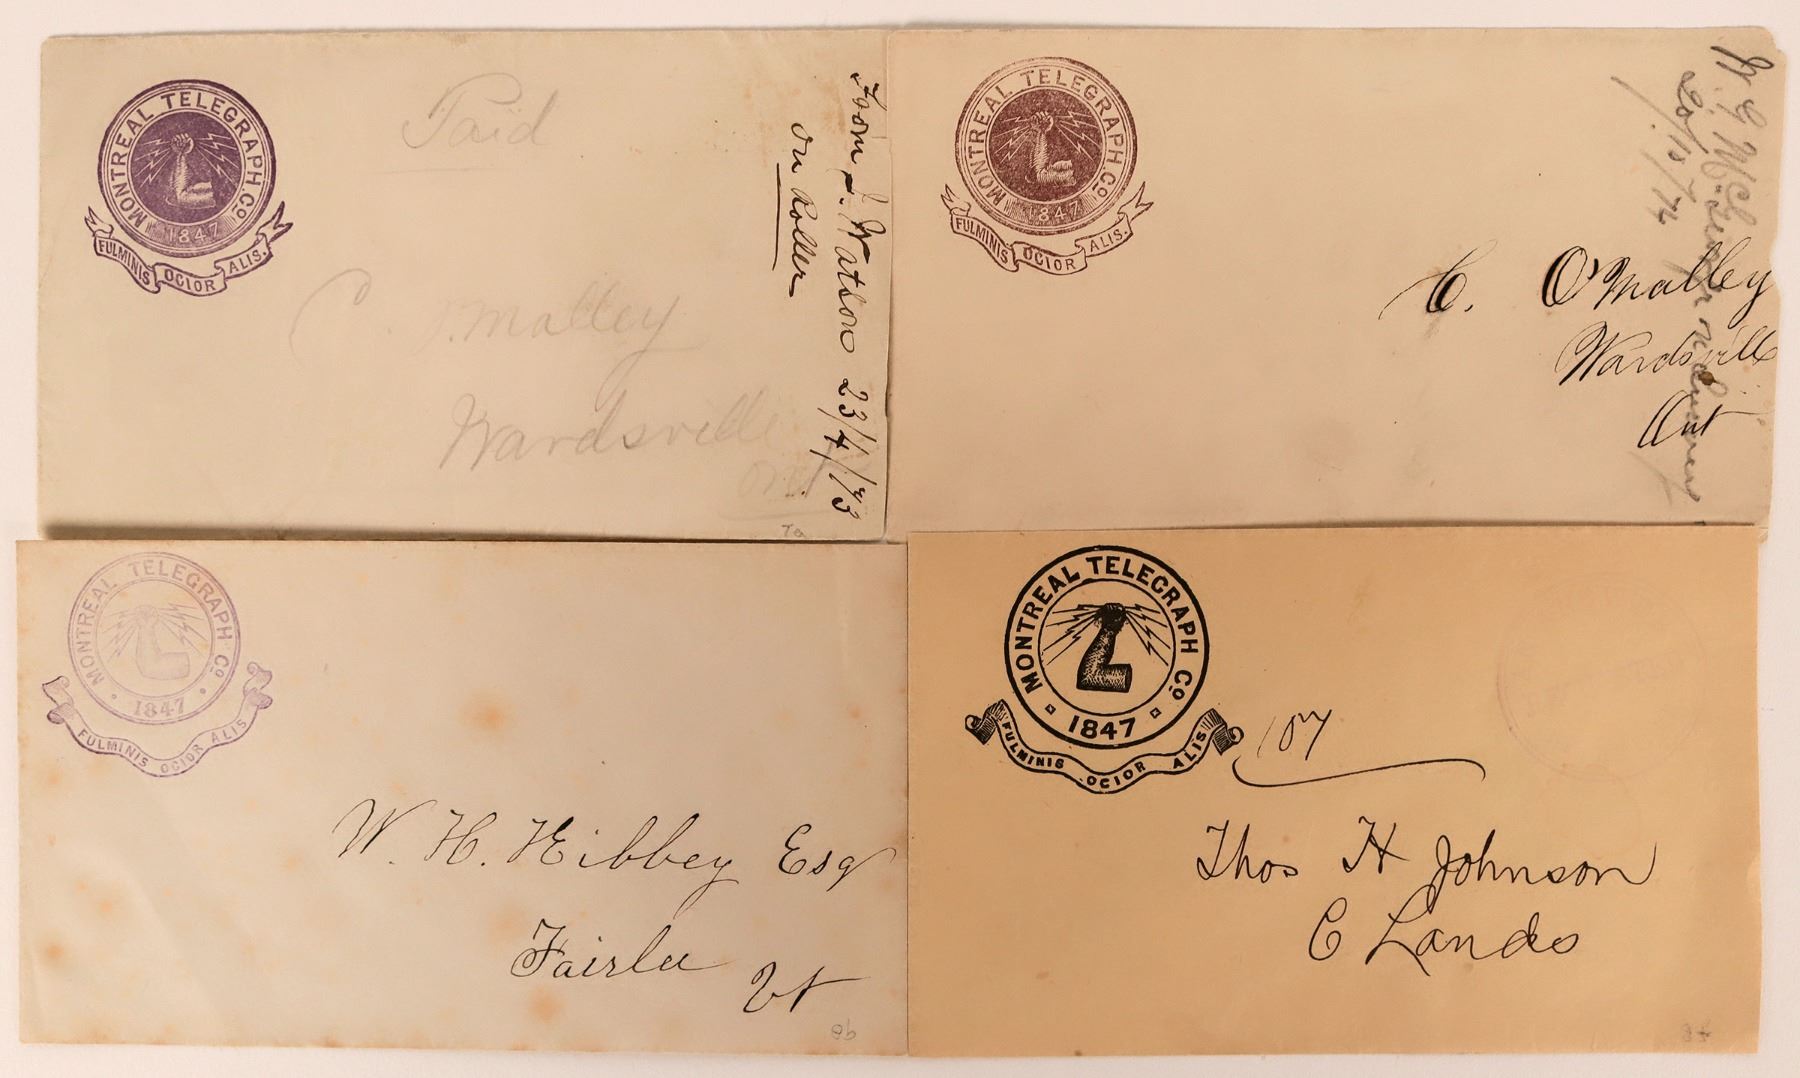 MONTREAL TELEGRAPH Co.
1847
FULMINIS OCIOR ALIS.
Paid
C. O'Malley
Wardsville
Ont
From J. Watson 23/4/73
on Roller
MONTREAL TELEGRAPH Co.
1847
FULMINIS OCIOR ALIS.
C. O'Malley
Wardsville
Ont
MONTREAL TELEGRAPH Co
1847
FULMINIS OCIOR ALIS
W. H. Hibbey Esq
Fairlee
Vt
MONTREAL TELEGRAPH Co
1847
FULMINIS OCIOR ALIS
Thos H Johnson
C Lands